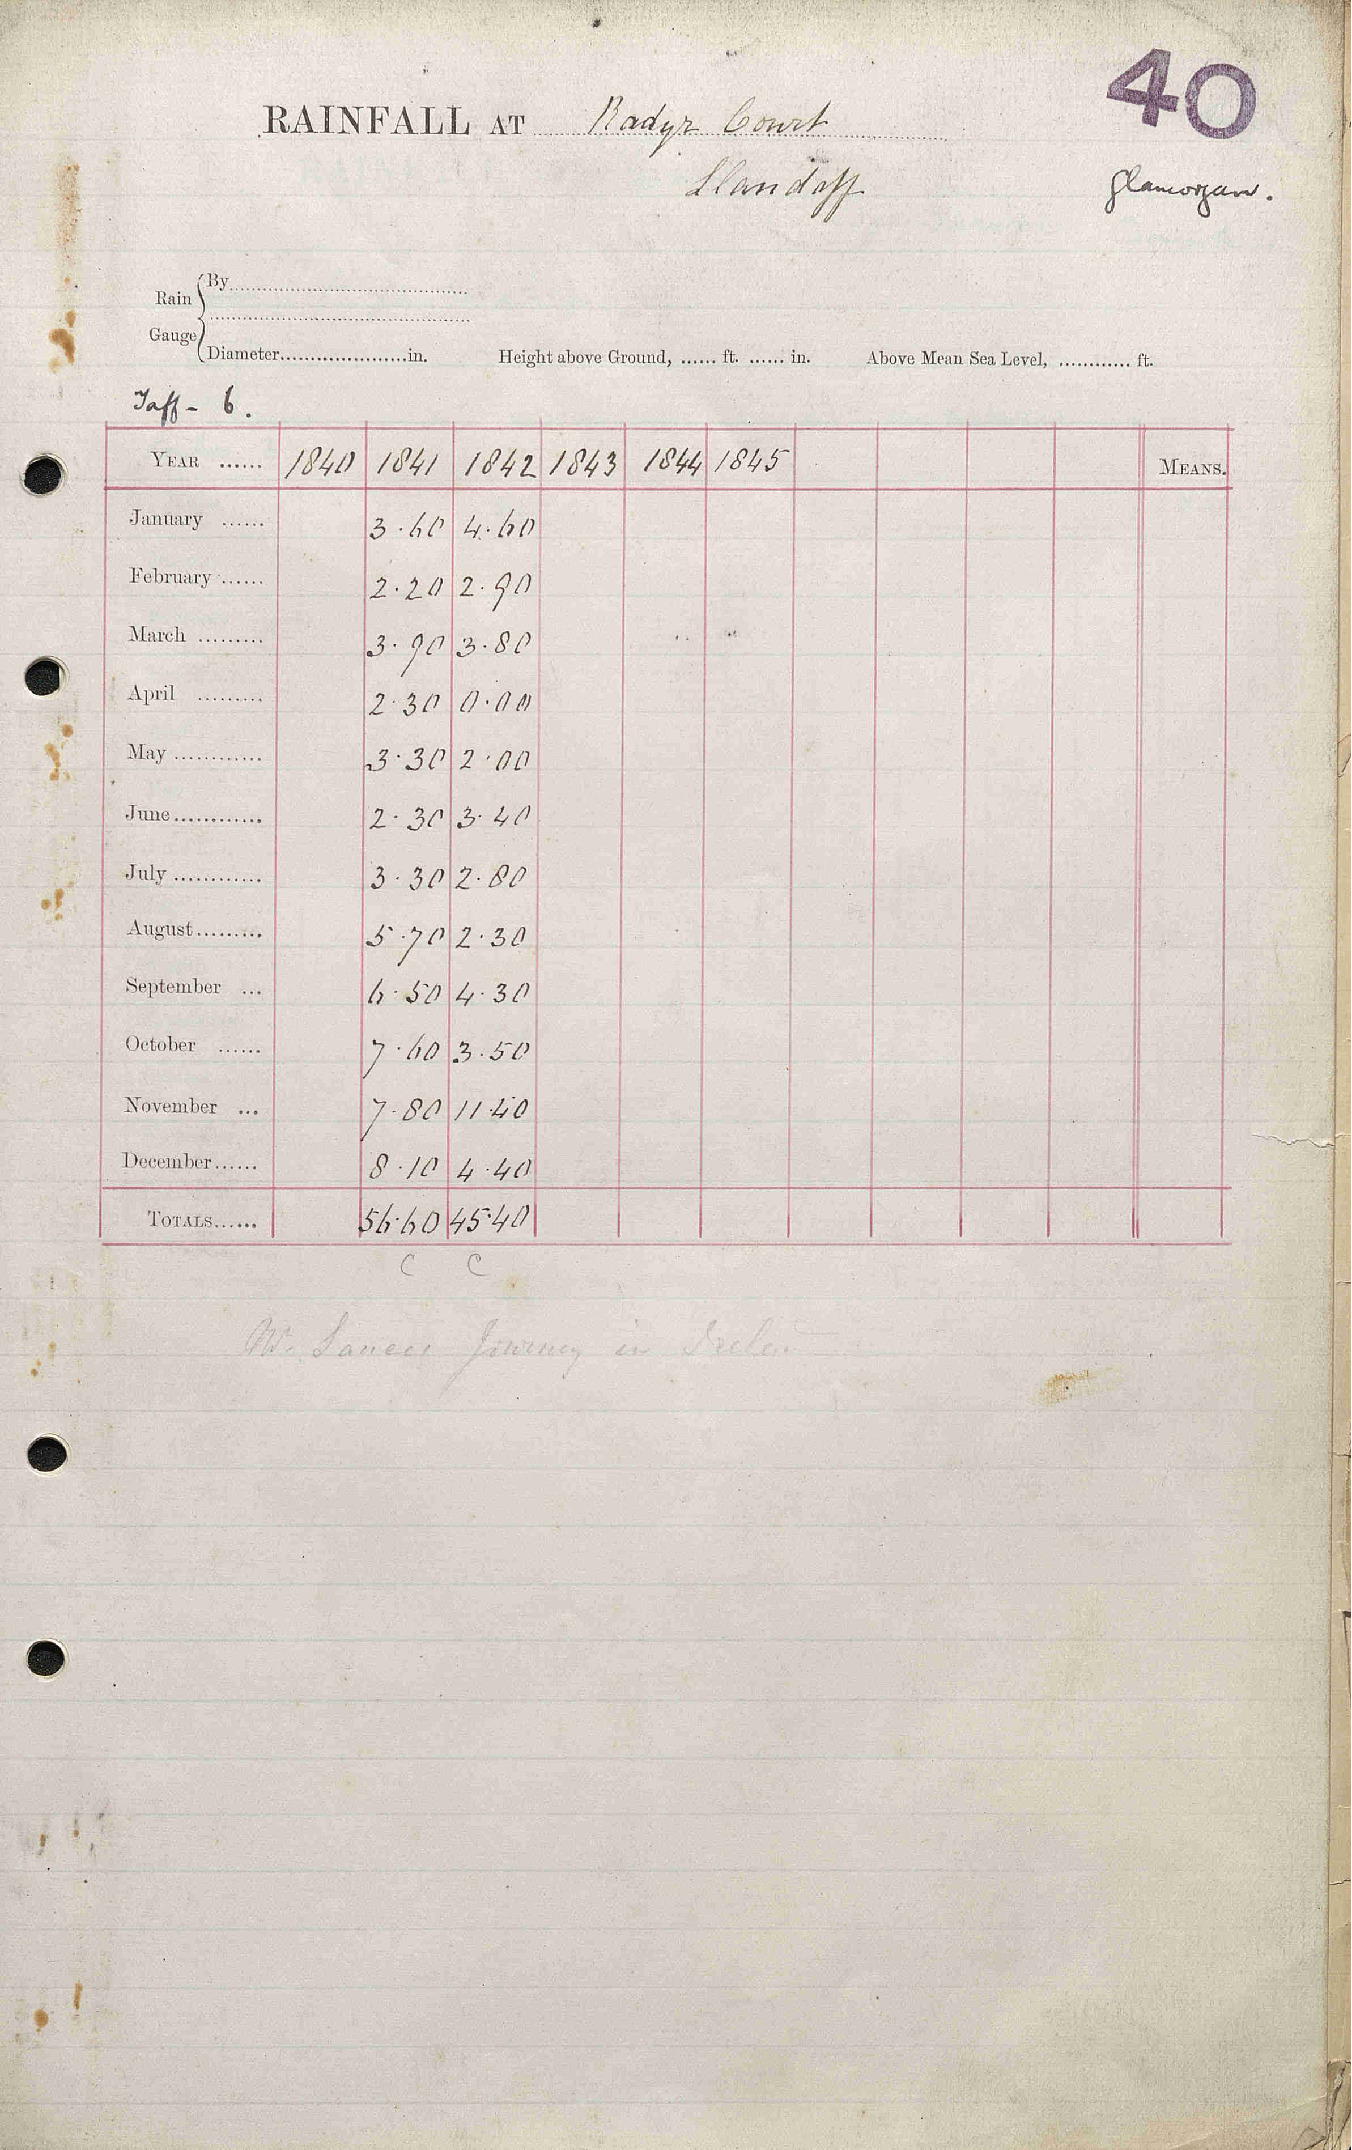 40
RAINFALL AT Radyr Court
Llandaff
Glamorgan.
Rain Gauge
By
Diameter in. Height above Ground, ...... ft. ...... in. Above Mean Sea Level, ............ ft.
Taff - 6.
YEAR ...... 1840 1841 1842 1843 1844 1845 MEANS.
January ...... 3.60 4.60
February ...... 2.20 2.90
March ......... 3.90 3.80
April ......... 2.30 0.00
May ............ 3.30 2.00
June ............ 2.30 3.40
July ............ 3.30 2.80
August ......... 5.70 2.30
September ... 6.50 4.30
October ...... 7.60 3.50
November ... 7.80 11.40
December ...... 8.10 4.40
TOTALS ...... 56.60 45.40
C C
Journey in